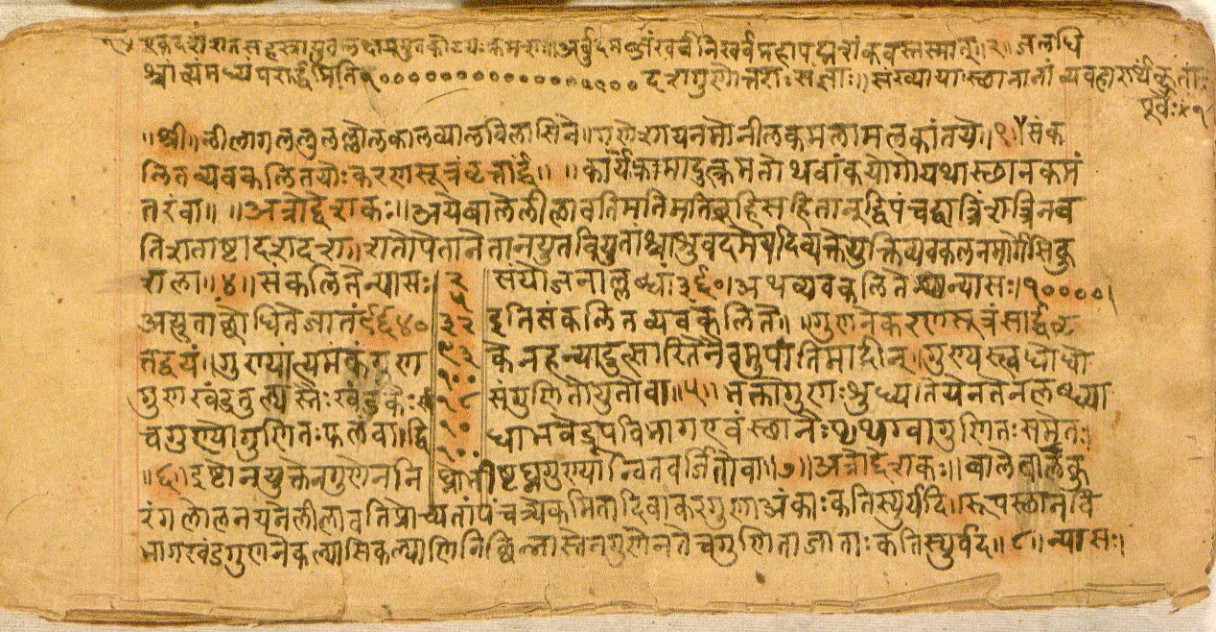 एकदशशतसहस्रायुतलक्षप्रयुतकोटयः क्रमशः॥ अर्बुदमब्जं खर्वनिखर्वमहापद्मशंकवस्तस्मात्॥२॥ जलधि
श्चांत्यं मध्यं परार्द्धमिति १०००००००००००००००००० दशगुणोत्तराः संज्ञाः॥ संख्यायाः स्थानानां व्यवहारार्थं कृताः
पूर्वैः
॥श्री॥ लीलागललुलल्लोलकालव्यालविलासिने॥ गणेशाय नमो नीलकमलामलकांतये॥१॥ संक
लितव्यवकलितयोः करणसूत्रं वृत्तार्द्धं॥ ॥कार्यः क्रमादुत्क्रमतोथवांकयोगो यथास्थानकमं
तरं वा॥ ॥अत्रोद्देशकः॥ अये बाले लीलावति मतिमति ब्रूहि सहितान् द्विपंचद्वात्रिंशत्रिनव
तिशताष्टादशदश॥ शतोपेतानेतानयुतवियुतांश्चाभुवद मे यदि व्यक्ते युक्तिव्यवकलनमार्गेसि कु
शला॥४॥ संकलिते न्यासः २ संयोजनाल्लब्धः ३६०। अथ व्यवकलिते न्यासः। १००००।
५
अयुताछोधिते जातं ९६४० ३२ इति संकलितव्यवकलिते॥ ॥गुणने करणसूत्रं सार्द्धवृ
त्तद्वयं॥ गुण्यांत्यमंकं गुण ९३ केन हन्यादुत्सारितेनैवमुपांतिमादीन्॥ गुण्यस्त्वधोधो
१००
गुणखंडतुल्यस्तैः खंडकैः सं १८ संगुणितो युतो वा॥५॥ भक्तो गुणः शुध्यति येन तेन लब्ध्या
च गुण्यो गुणितः फलं वा। द्वि १० धा भवेद्रूपविभाग एवं स्थानैः पृथग्वा गुणितः समेतः।
१००
॥६॥ इष्टोनयुक्तेन गुणेन नि घ्नोभीष्टघ्नगुण्यान्वितवर्जितो वा॥७॥ अत्रोद्देशकः॥ बाले बालकु
रंगलोलनयने लीलावति प्रोच्यतां पंचत्र्येकमिता दिवाकरगुणा अंकाः कति स्युर्यदि॥ रूपस्थानवि
भागखंडगुणने कल्यासि कल्याणिनि छिन्नास्तेन गुणेन ते च गुणिता जाताः कति स्युर्वद॥८॥ न्यासः।